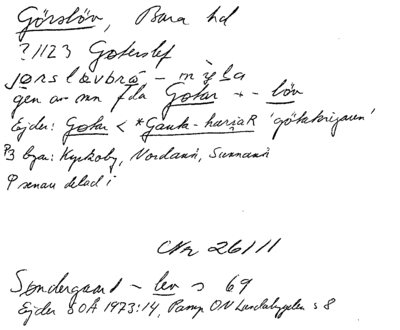 Görslöv, Bara hd
?1123 Goterslef
jørslævbrá - mỳla
gen av mn fda Gotar + - löv
Ejder: Gotar < *Gauta-hariaR 'götakrigaren'
3 byar: Kyrkoby, Nordanå, Sunnanå
senau delad i
Cnr 26/11
Søndergaard - lev s 69
Ejder SOÅ 1973:14, Pamp ON Lundabygden s 8